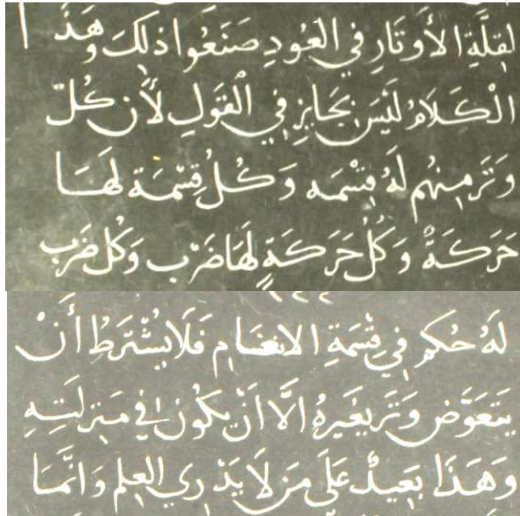 لقلة الأوتار في العود صنعوا ذلك وهذا
الكلام ليس بجايز في القول لأن كلّ
وتر منهم له قسمه وكل قسمة لها
حركة وكل حركة لها ضرب وكل ضرب
له حكم في قسمة الانغام فلا يشترط أن
يتعوض وتر بغيره الا ان يكون في منزلته
وهذا بعيد على من لا يدري العلم وانما